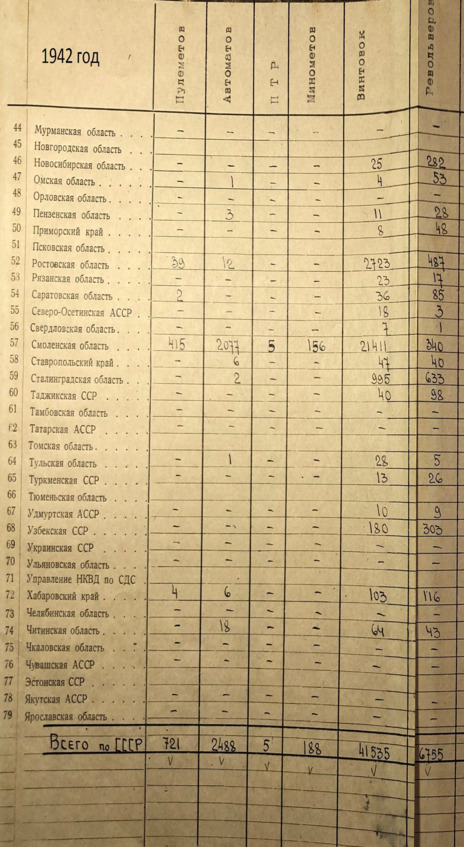 1942 год
Пулеметов Автоматов ПТР Минометов Винтовок Револьверов
44 Мурманская область . . . – – – – – –
45 Новгородская область
46 Новосибирская область . . – – – – 25 282
47 Омская область . . . . . . – 1 – – 4 53
48 Орловская область . . . . – – – – – –
49 Пензенская область . . . . – 3 – – 11 28
50 Приморский край . . . . . – – – – 8 48
51 Псковская область . . . .
52 Ростовская область . . . . 39 12 – – 2723 487
53 Рязанская область . . . . – – – – 23 17
54 Саратовская область . . . 2 – – – 36 85
55 Северо-Осетинская АССР . – – – – 18 3
56 Свердловская область . . . – – – – 7 1
57 Смоленская область . . . . 415 2077 5 156 21411 340
58 Ставропольский край . . . – 6 – – 47 40
59 Сталинградская область . . – 2 – – 995 633
60 Таджикская ССР . . . . . – – – – 40 98
61 Тамбовская область . . . . – – – – – –
62 Татарская АССР . . . . . – – – – – –
63 Томская область . . . . .
64 Тульская область . . . . . – 1 – – 28 5
65 Туркменская ССР . . . . – – – – 13 26
66 Тюменьская область . . .
67 Удмуртская АССР . . . . – – – – 10 9
68 Узбекская ССР . . . . . . – – – – 180 303
69 Украинская ССР . . . . . – – – – – –
70 Ульяновская область . . . – – – – – –
71 Управление НКВД по СДС .
72 Хабаровский край . . . . . 4 6 – – 103 116
73 Челябинская область . . . – – – – – –
74 Читинская область . . . . – 18 – – 64 43
75 Чкаловская область . . . . – – – – – –
76 Чувашская АССР . . . . . – – – – – –
77 Эстонская ССР . . . . . .
78 Якутская АССР . . . . . . – – – – – –
79 Ярославская область . . . – – – – – –
Всего по СССР 721 2488 5 188 41535 6755
V V V V V V